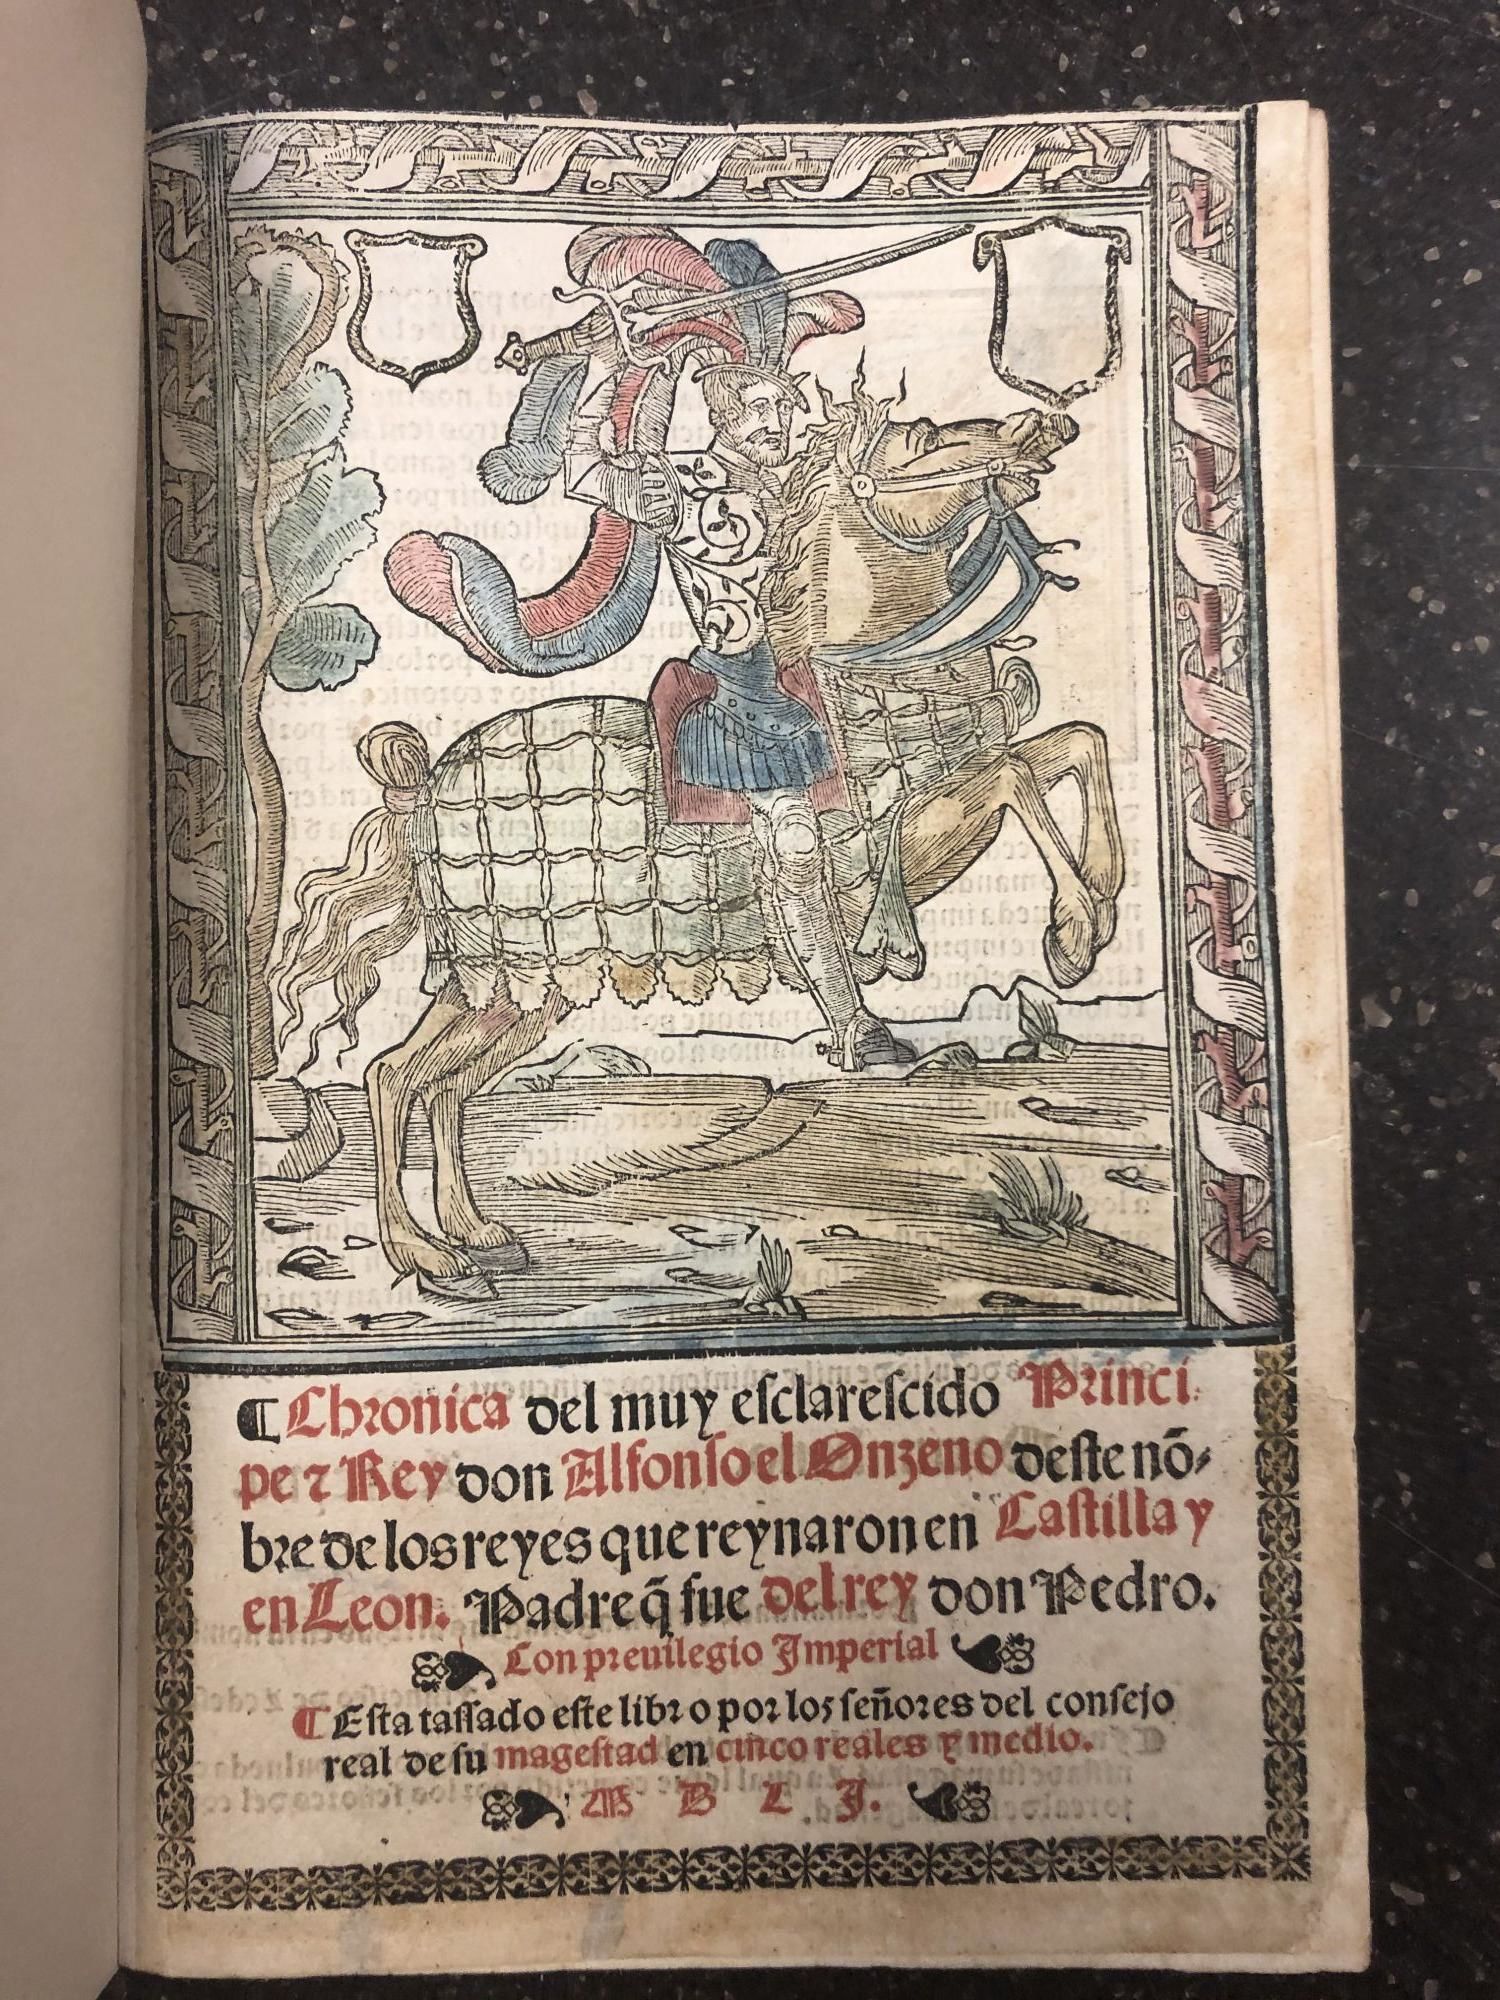 ¶ Chronica del muy esclarescido Princi
pe ⁊ Rey don Alfonso el Onzeno deste nõ-
bre de los reyes que reynaron en Castilla y
en Leon. Padre q̃ fue del rey don Pedro.
Con preuilegio Imperial
¶ Esta tassado este libro por los señores del consejo
real de su magestad en cinco reales y medio.
M D L J.